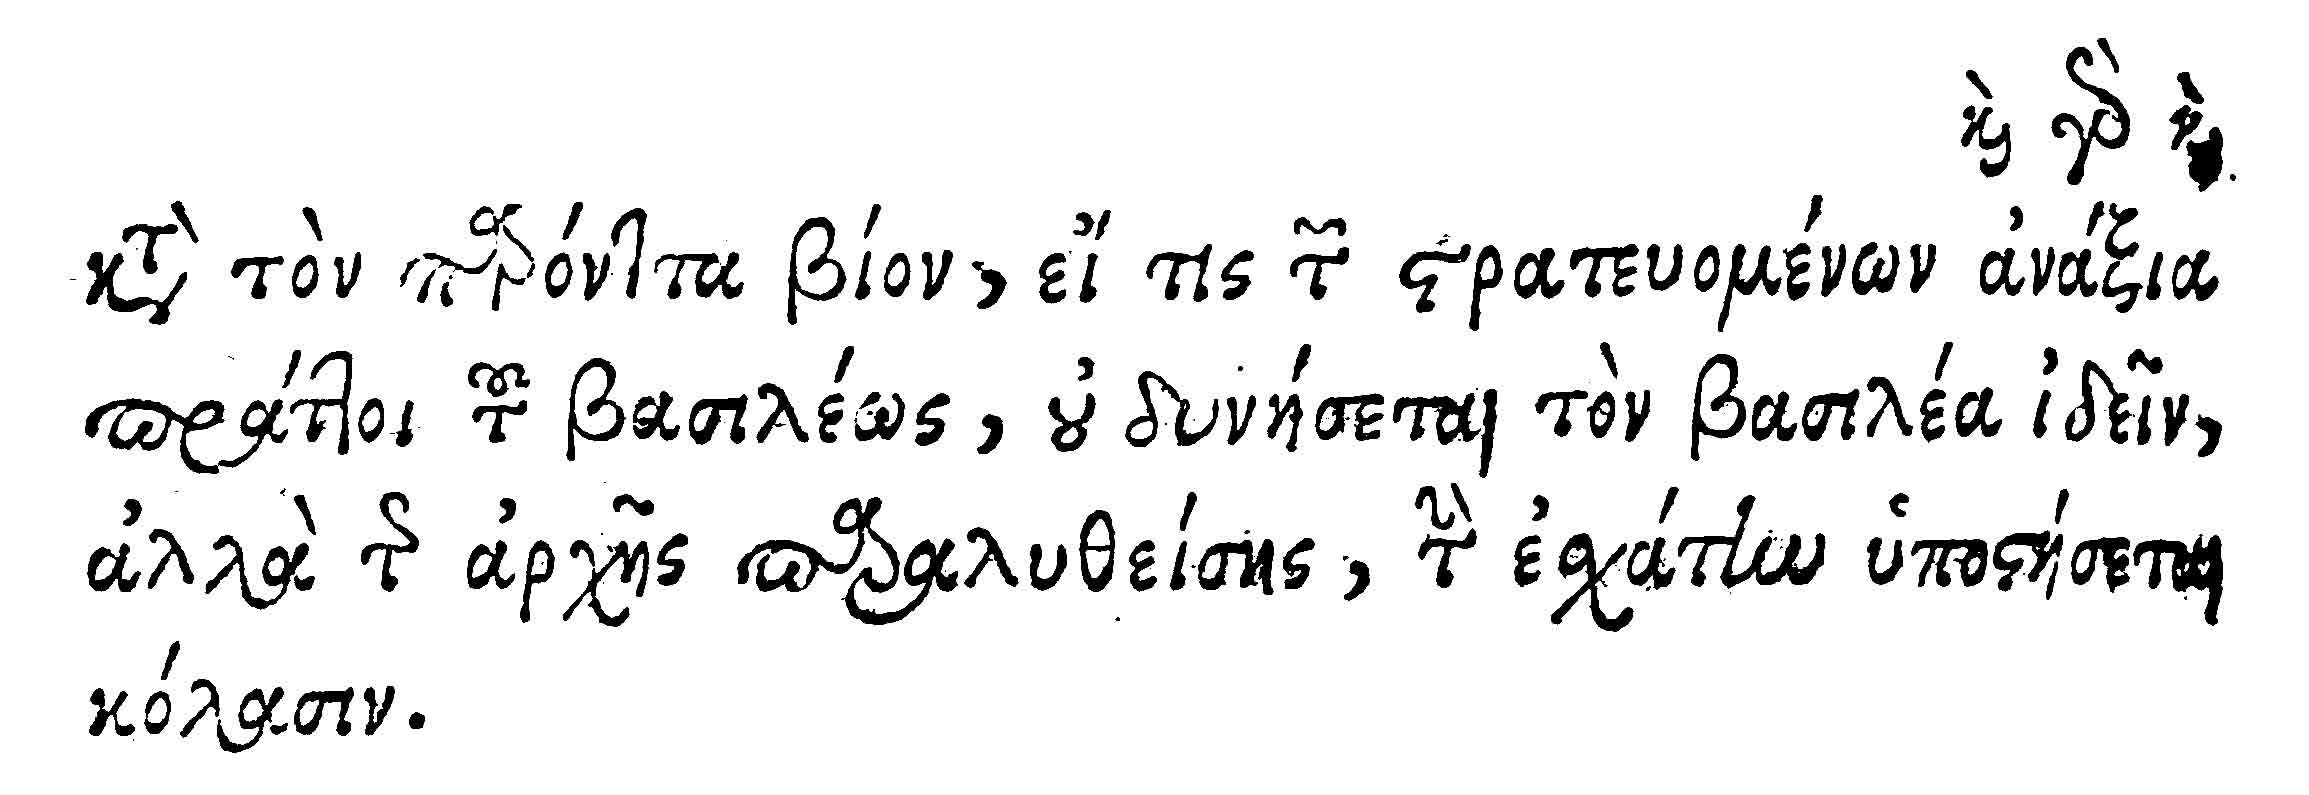 καὶ γὰρ καὶ
κατὰ τὸν παρόντα βίον, εἴ τις τῶν στρατευομένων ἀνάξια
πράττοι τοῦ βασιλέως, οὐ δυνήσεται τὸν βασιλέα ἰδεῖν,
ἀλλὰ τῆς ἀρχῆς παραλυθείσης, τὴν ἐσχάτην ὑποστήσεται
κόλασιν.